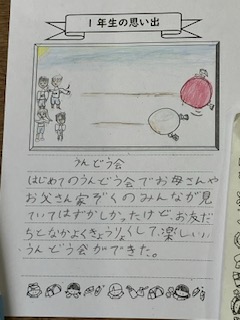 1年生の思い出
うんどう会
はじめてのうんどう会でお母さんや
お父さん家ぞくのみんなが見
ていてはずかしかったけど、お友だ
ちとなかよくきょうりょくして、楽しい
うんどう会ができた。